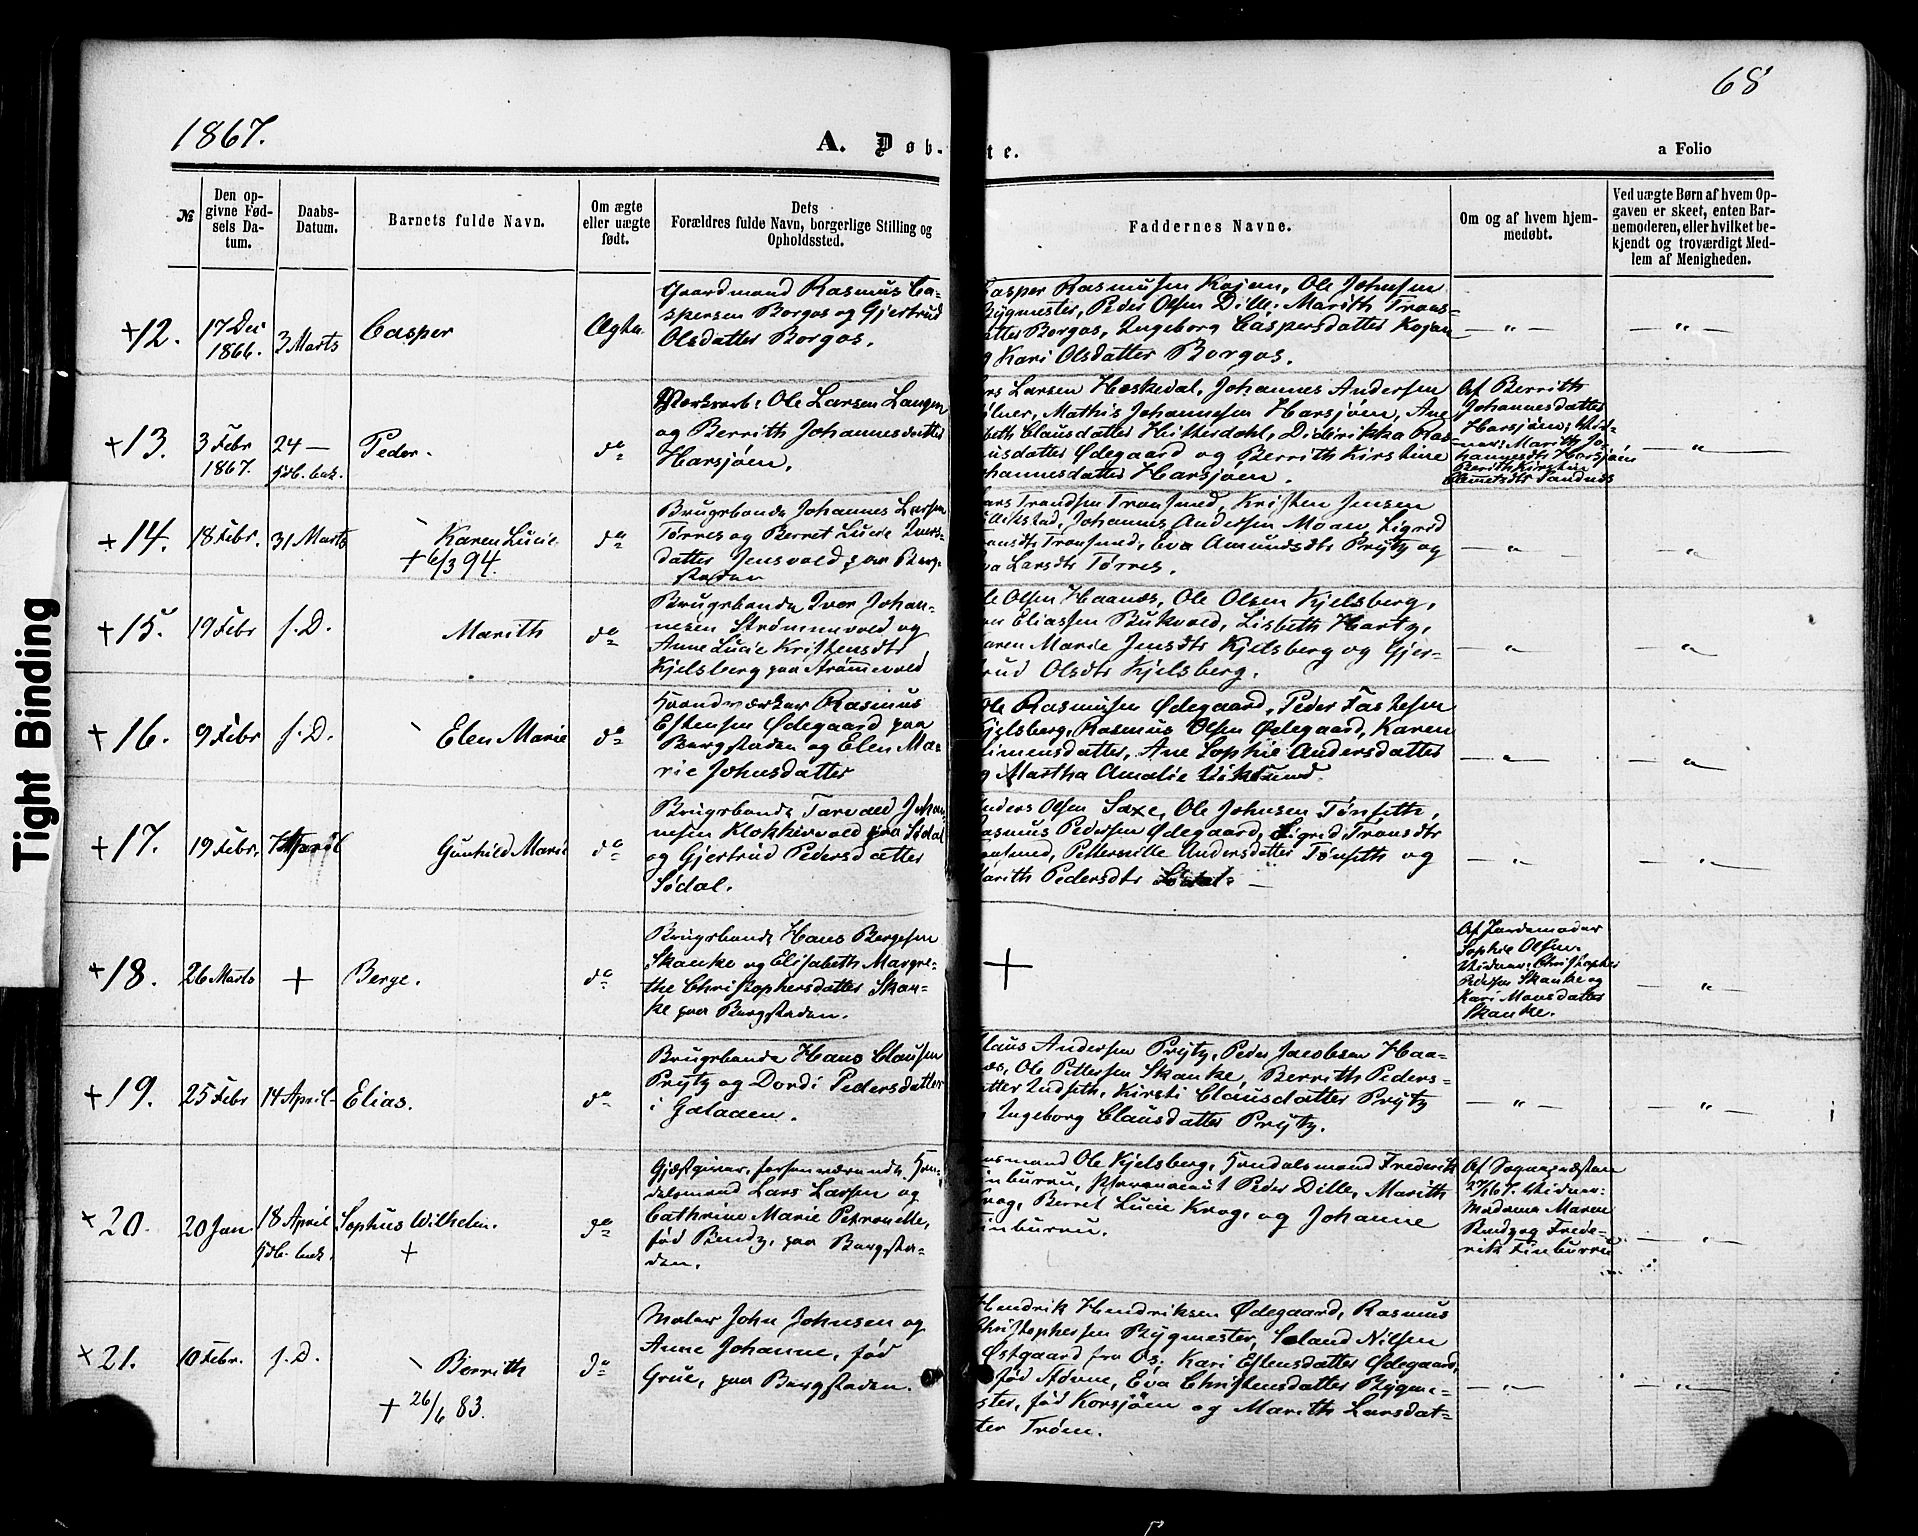 68
1867.
A. Døb-
te.
a Folio
№
Den op-
givne Fød-
sels Da-
tum.
Daabs-
Datum.
Barnets fulde Navn.
Om ægte
eller uægte
født.
Dets
Forældres fulde Navn, borgerlige Stilling og
Opholdssted.
Faddernes Navne.
Om og af hvem hjem-
medøbt.
Ved uægte Børn af hvem Op-
gaven er skeet, enten Bar-
nemoderen, eller hvilket be-
kjendt og troværdigt Med-
lem af Menigheden.
+12.
17 Dec
1866.
3 Marts
Casper
Ægte.
Gaardmand Rasmus Ca-
spersen Borgos og Gjertrud
Olsdatter Borgos.
Casper Rasmusen Kojan, Ole Johnsen
Bygmester, Peder Olsen Dille, Marith Trons-
datter Borgos, Ingeborg Caspersdatter Kojan
og Kari Olsdatter Borgos.
— " —
— " —
+13.
3 Febr
1867.
24 —
Peder.
do
Ole Larsen Langen
og Berrith Johannesdatter
Harsjøen.
Lars Larsen Hæskedal, Johannes Andersen
Mathis Johannesen Harsjøen, Ane
Clausdatter Hitterdahl, Didrikka Ras-
musdatter Ødegaard og Berrith Kirstine
Johannesdatter Harsjøen.
Af Berrith
Johannesdatter
Harsjøen; Vid-
ner: Marith Jo-
hannesdtr Harsjøen
Berith Kirstine
Clemetsdtr Sandnes
— " —
+14.
18 Febr.
31 Marts
Karen Lucie
+ 6/3 94.
do
Brugsbonde Johannes Larsen
Tørres og Berret Lucie Ivers-
datter Jensvold paa Berg-
staden
Lars Trondsen Tronsmed, Kristen Jensen
Johannes Andersen Moan, Sigrid
Tronsdtr Tronsmed, Eva Amundsdtr Prytz og
Eva Larsdtr Tørres.
— " —
— " —
+15.
19 Febr
s. D.
Marith
do
Brugsbonde Iver Johan-
nesen Strømmevold og
Anne Lucie Kristensdtr
Kjelsberg paa Strømmevold
Ole Olsen Haanæs, Ole Olsen Kjelsberg,
Eliassen Bukvold, Lisbeth Hartz,
Karen Marie Jensdtr Kjelsberg og Gjer-
trud Olsdtr Kjelsberg.
— " —
— " —
+16.
9 Febr
s. D.
Elen Marie
do
Haandværker Rasmus
Estensen Ødegaard paa
Bergstaden og Elen Ma-
rie Johnsdatter
Ole Rasmusen Ødegaard, Peder
Kjelsberg, Rasmus Olsen Ødegaard, Karen
Simensdatter, Ane Sophie Andersdatter
og Martha Amalie Viksund.
— " —
— " —
+17.
19 Febr.
7 April
Gunhild Marie
do
Brugsbonde Tarvald Johan-
nesen Klokkervold fra Sødal
og Gjertrud Pedersdatter
Sødal.
Anders Olsen Saxe, Ole Johnsen Tønseth,
Rasmus Pedersen Ødegaard, Sigrid Tronsdtr
Tronsmed, Petternille Andersdatter Tønseth og
Marith Pedersdtr Sødal. —
— " —
— " —
+18.
26 Marts
+
Berge.
do
Brugsbonde Hans Bergesen
Skanke og Elisabeth Margre-
the Christophersdatter Skan-
ke paa Bergstaden.
+
Af Jordemoder
Sophie Olsen.
Vidner: Christopher
Pedersen Skanke og
Kari Monsdatter
Skanke.
— " —
+19.
25 Febr
14 April
Elias.
do
Brugsbonde Hans Clausen
Prytz og Dordi Pedersdatter
i Galaaen.
Claus Andersen Prytz, Peder Jacobsen Haa-
næs, Ole Pettersen Skanke, Berrith Peders-
datter Indseth, Kirsti Clausdatter Prytz
og Ingeborg Clausdatter Prytz.
— " —
— " —
+20.
20 Jan
18 April
Sophus Wilhelm.
+
do
Gjæstgiver, forhenværende Han-
delsmand Lars Larsen og
Cathrine Marie Petronelle,
fød Bendz, paa Bergsta-
den.
Ole Kjelsberg, Handelsmand Frederik
Finburru, Peder Dille, Marith
Krog, Berret Lucie Krog, og Johanne
Finburru.
Af Sognepræsten
Vidner:
Madame Maren
Bendz og Frede-
rik Finburru
— " —
+21.
10 Febr.
s. D.
Berrith
+ 26/6 83.
do
Maler John Johnsen og
Anne Johanne, fød
Grue, paa Bergstaden.
Hendrik Hendriksen Ødegaard, Rasmus
Christophersen Bygmester, Nilsen
Østgaard fra Os; Kari Estensdatter Ødegaard,
fød Støvne, Eva Christensdatter Bygme-
ster, fød Korsjøen og Marith Larsdat-
ter Trøen.
— " —
— " —
Tight Binding